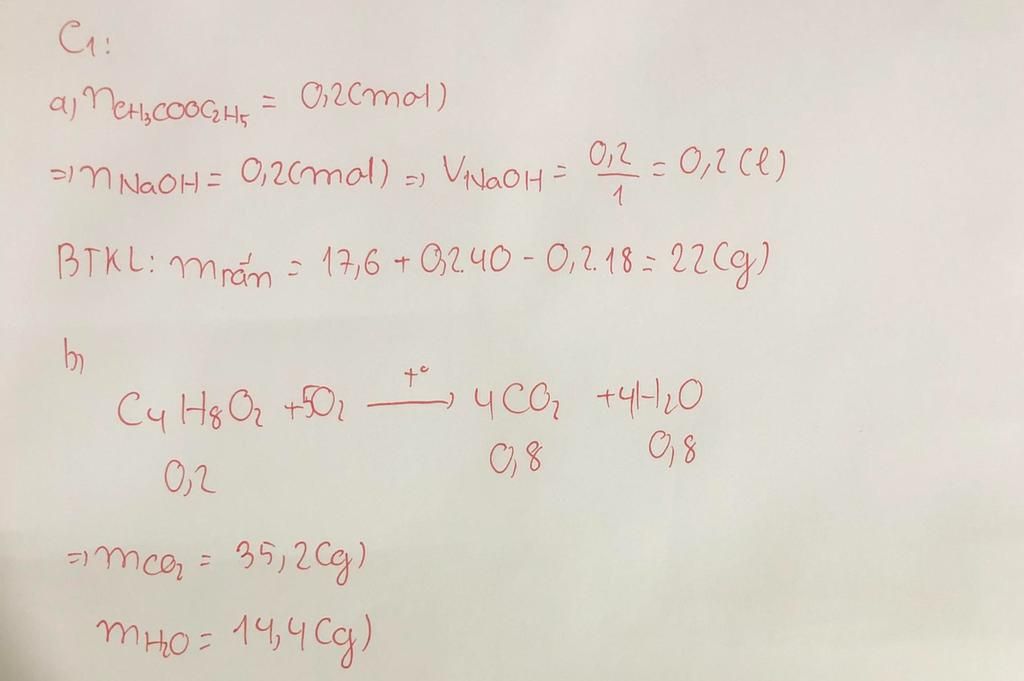 C1:
a) nCH3COOC2H5 = 0,2(mol)
=> nNaOH = 0,2(mol) => V1NaOH = 0,2/1 = 0,2(l)
BTKL: mrắn = 17,6 + 0,2.40 - 0,2.18 = 22(g)
b)
C4H8O2 + 5O2 —t°→ 4CO2 + 4H2O
0,2 0,8 0,8
=> mCO2 = 35,2(g)
mH2O = 14,4(g)